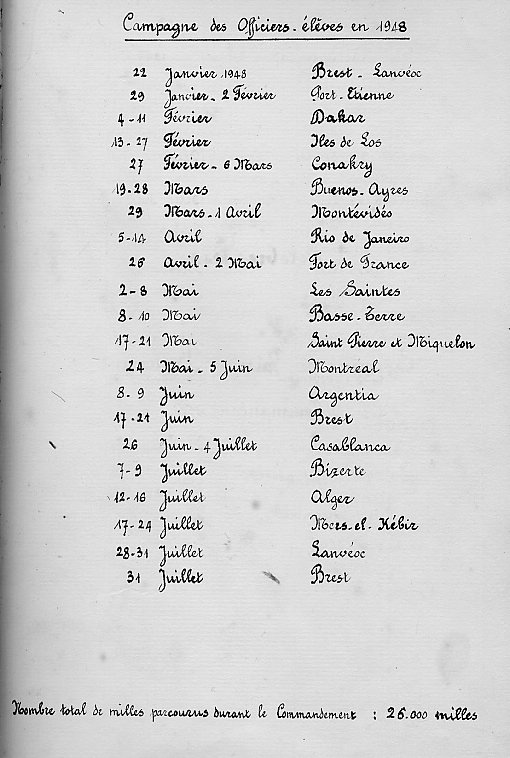 Campagne des Officiers-élèves en 1948
22 Janvier 1948 Brest - Lanvéoc
29 Janvier - 2 Février Port-Etienne
4-11 Février Dakar
13-27 Février Iles de Los
27 Février - 6 Mars Conakry
19-28 Mars Buenos-Ayres
29 Mars - 1 Avril Montévidéo
5-14 Avril Rio de Janeiro
26 Avril - 2 Mai Fort de France
2-8 Mai Les Saintes
8-10 Mai Basse-Terre
17-21 Mai Saint Pierre et Miquelon
24 Mai - 5 Juin Montreal
8-9 Juin Argentia
17-21 Juin Brest
26 Juin - 4 Juillet Casablanca
7-9 Juillet Bizerte
12-16 Juillet Alger
17-24 Juillet Mers-el-Kébir
28-31 Juillet Lanvéoc
31 Juillet Brest
Nombre total de milles parcourus durant le Commandement : 26.000 milles